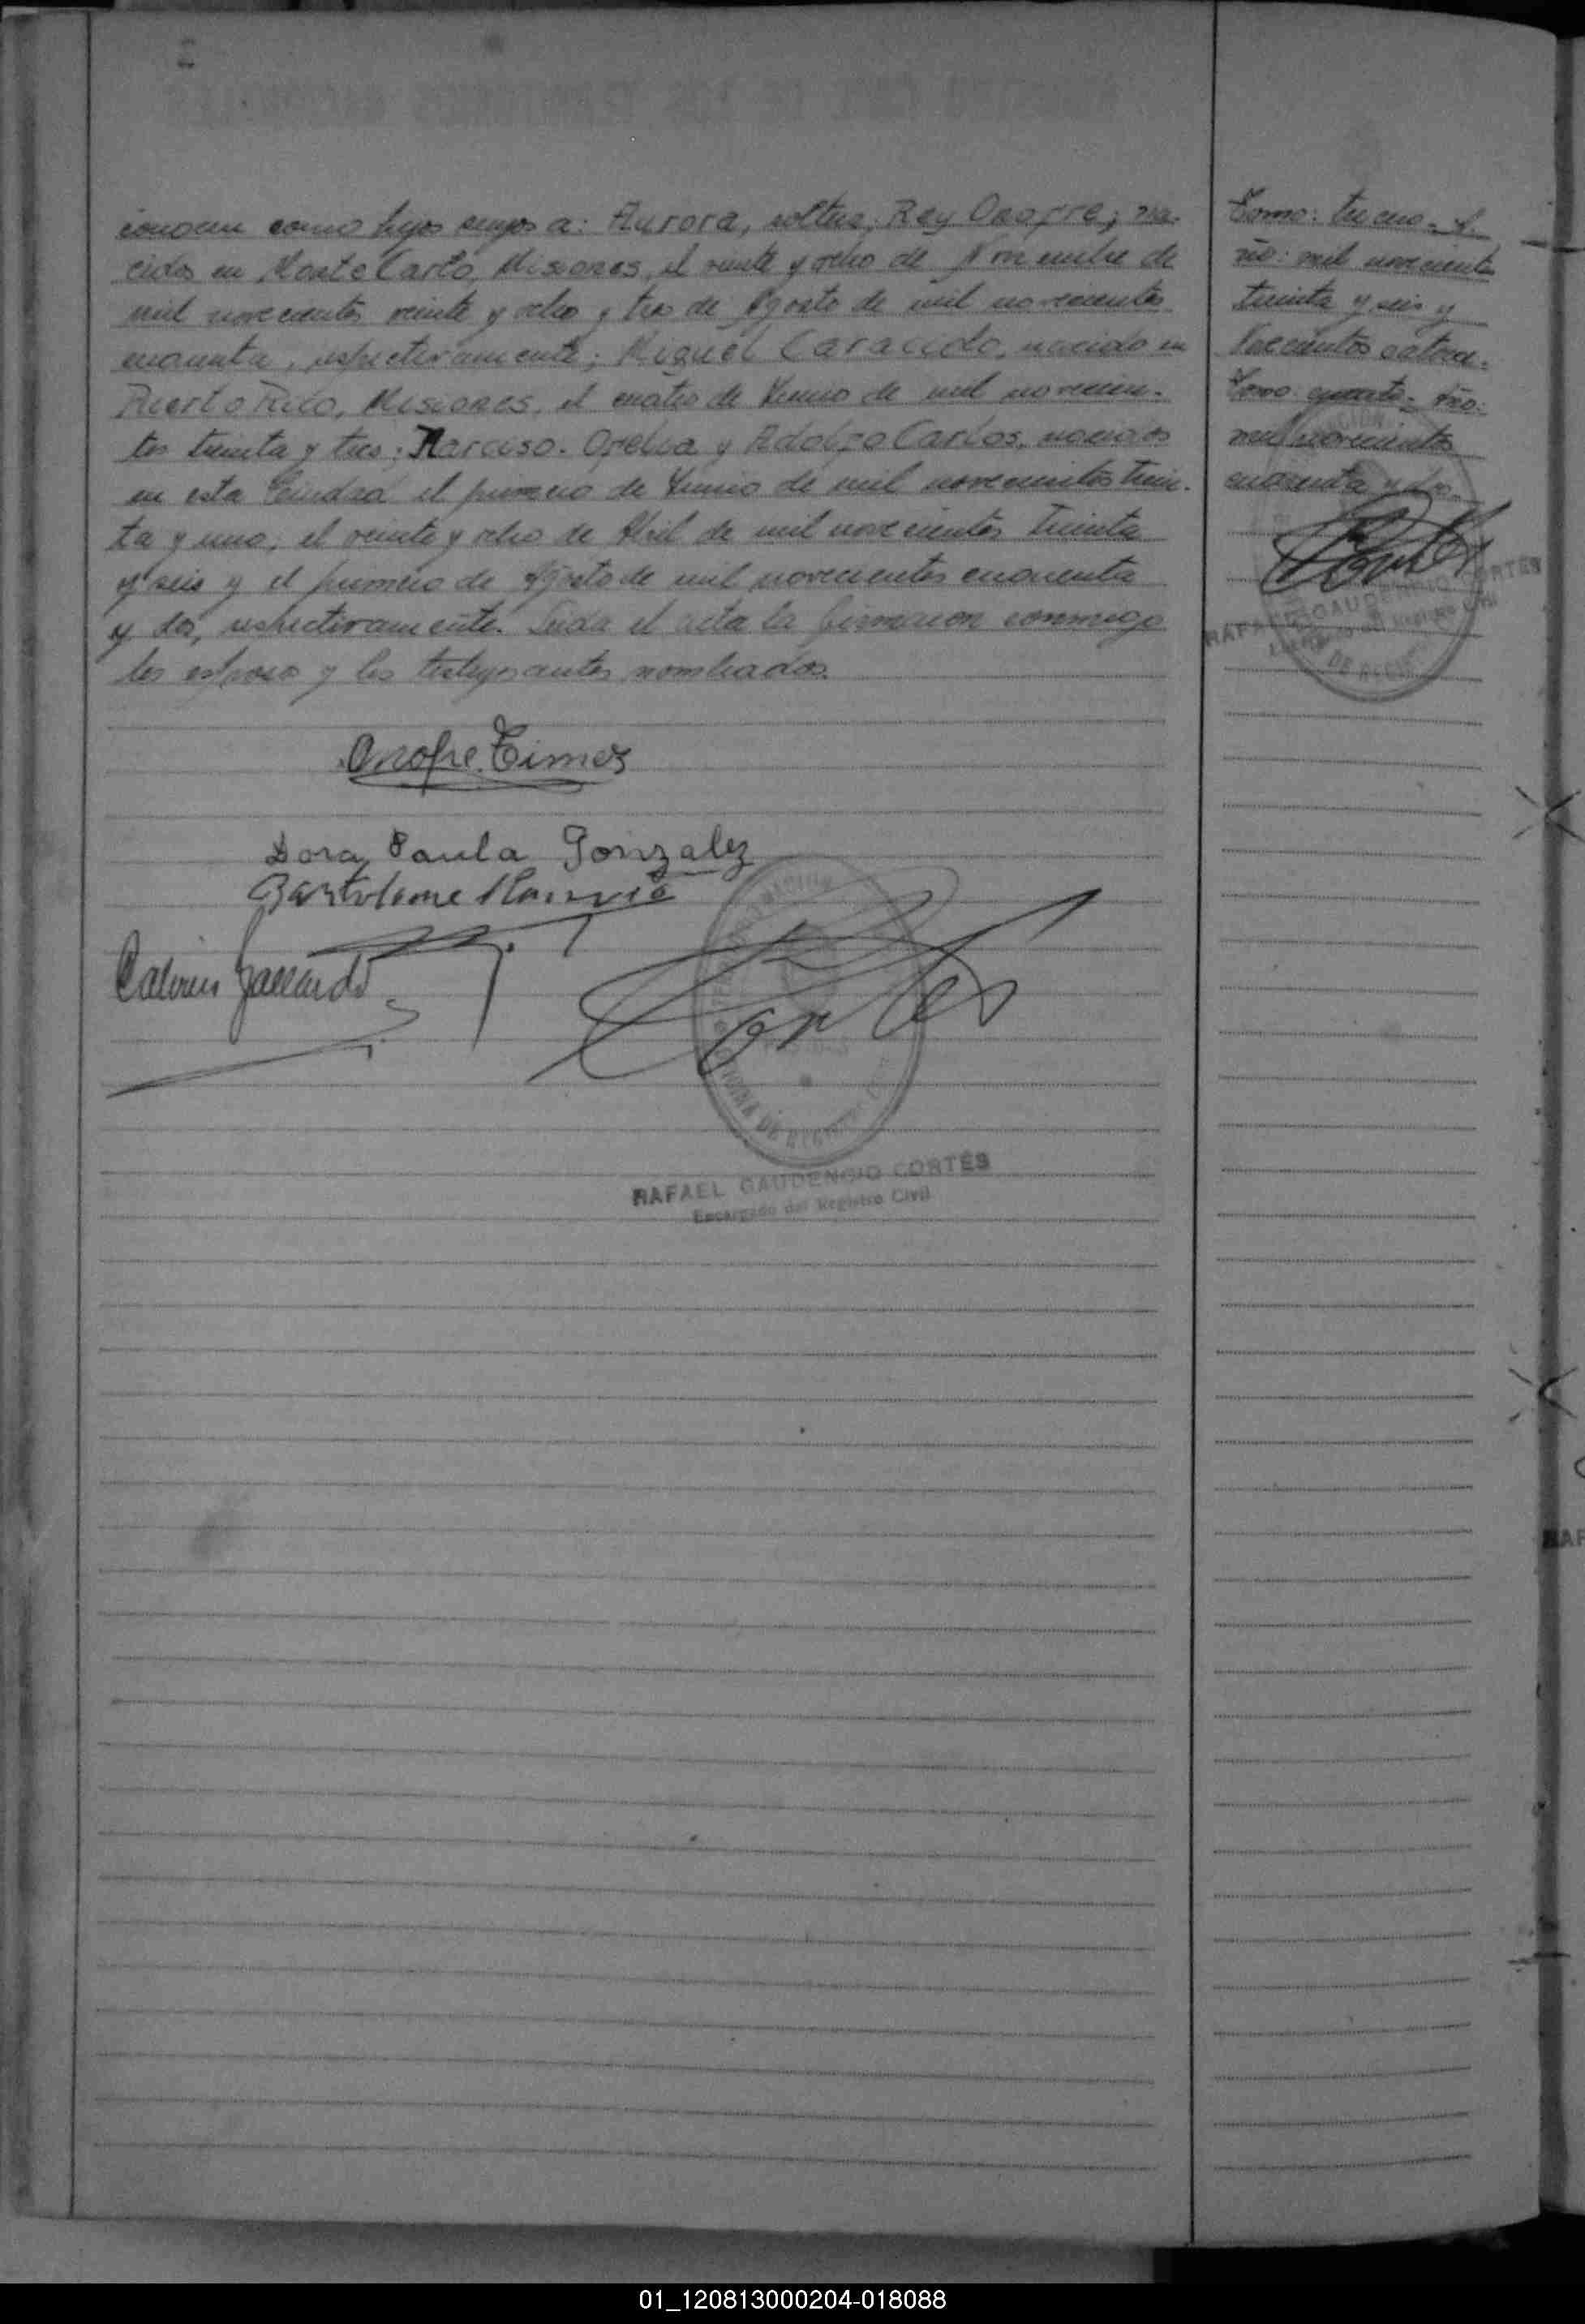 conocen como hijos suyos a: Aurora, soltera; Rey Onofre; na-
cidos en Monte Carlo, Misiones, el veinte y ocho de Noviembre de
mil novecientos veinte y ocho y tres de Agosto de mil novecientos
cuarenta, respectivamente; Miguel Caracciolo, nacido en
Puerto Rico, Misiones, el cuatro de Junio de mil novecien-
tos treinta y tres; Narciso. Ofelia y Adolfo Carlos, nacidos
en esta Ciudad el primero de Junio de mil novecientos trein-
ta y uno, el veinte y ocho de Abril de mil novecientos treinta
y seis y el primero de Agosto de mil novecientos cuarenta
y dos, respectivamente. Leída el acta la firmaron conmigo
los esposos y los testigos antes nombrados.
Onofre
Dora Paula Gonzalez
Bartolome
Gallardo
Cortes
OFICINA DE REGISTRO
RAFAEL GAUDENCIO CORTÉS
Encargado del Registro Civil
Tomo: tercero- A-
ño: mil novecientos
treinta y seis y
Trecientos catorce-
Tomo: cuarto- Año:
mil novecientos
cuarenta y dos-
RAFAEL GAUDENCIO CORTÉS
Encargado del Registro Civil
DE REGISTRO
RAF
01_120813000204-018088